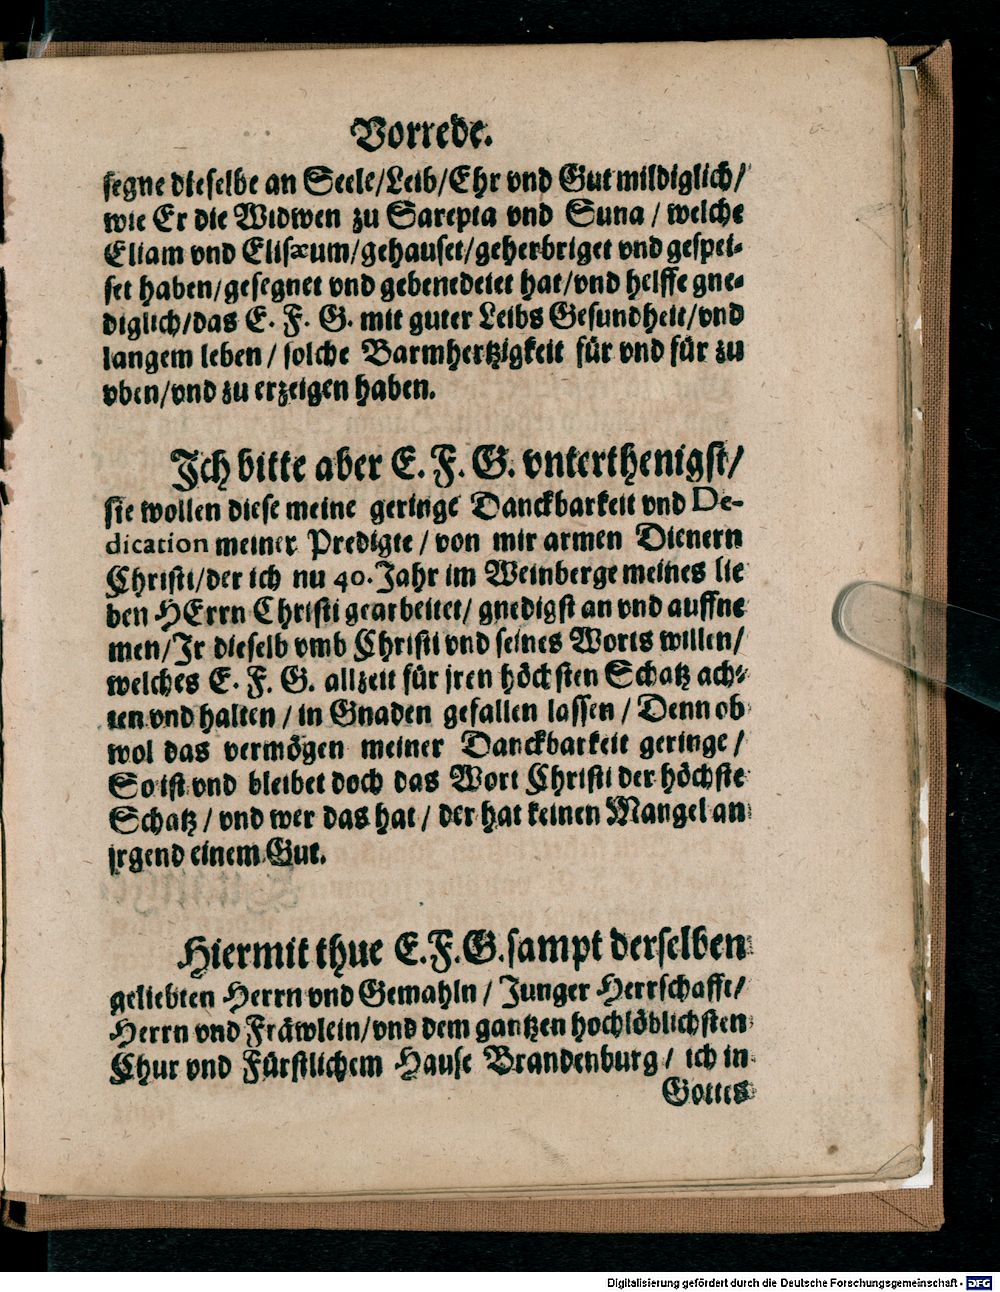 Vorrede.
segne dieselbe an Seele/Leib/Ehr vnd Gut mildiglich/
wie Er die Widwen zu Sarepta vnd Suna / welche
Eliam vnd Elisæum/gehauset/geherbriget vnd gespei-
set haben/gesegnet vnd gebenedeiet hat/vnd helffe gne-
diglich/das E. F. G. mit guter Leibs Gesundheit/vnd
langem leben / solche Barmhertzigkeit für vnd für zu
vben/vnd zu erzeigen haben.
Ich bitte aber E. F. G. vnterthenigst/
sie wollen diese meine geringe Danckbarkeit vnd De-
dication meiner Predigte / von mir armen Dienern
Christi/der ich nu 40. Jahr im Weinberge meines lie
ben HErrn Christi gearbeitet/ gnedigst an vnd auffne
men/Jr dieselb vmb Christi vnd seines Worts willen/
welches E. F. G. allzeit für jren höchsten Schatz ach-
ten vnd halten / in Gnaden gefallen lassen / Denn ob
wol das vermögen meiner Danckbarkeit geringe /
So ist vnd bleibet doch das Wort Christi der höchste
Schatz / vnd wer das hat / der hat keinen Mangel an
jrgend einem Gut.
Hiermit thue E. F. G. sampt derselben
geliebten Herrn vnd Gemahln / Junger Herrschafft/
Herrn vnd Fräwlein/vnd dem gantzen hochlöblichsten
Chur vnd Fürstlichem Hause Brandenburg / ich in
Gottes
Digitalisierung gefördert durch die Deutsche Forschungsgemeinschaft - DFG